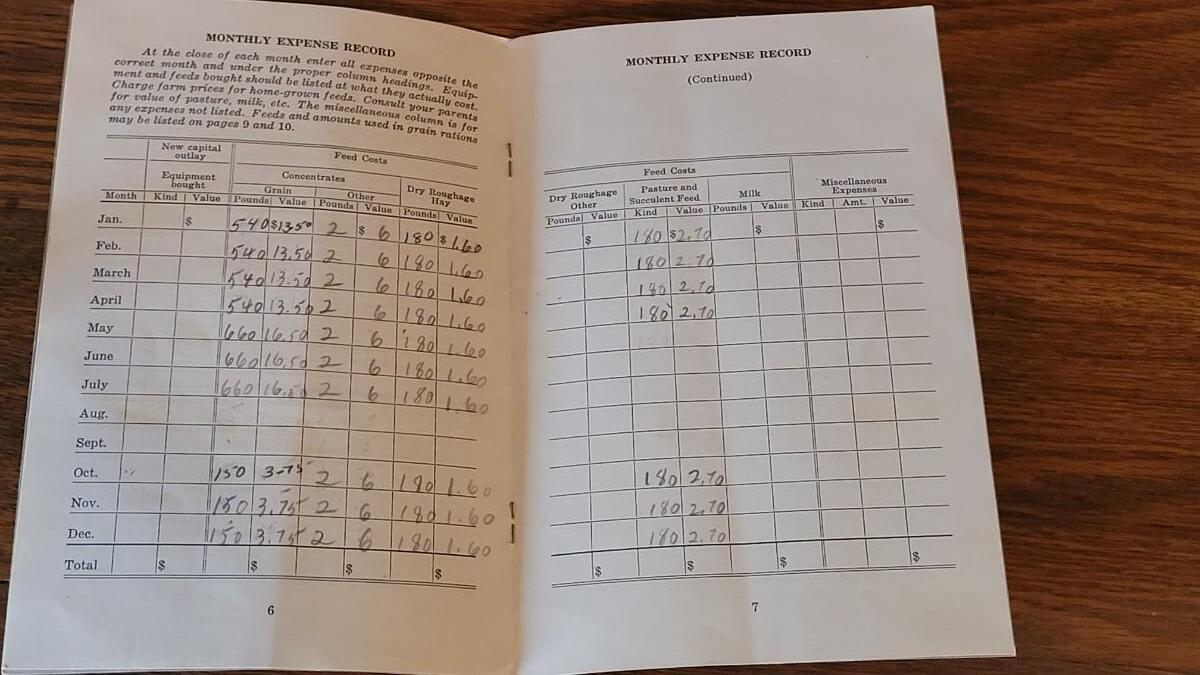 MONTHLY EXPENSE RECORD
At the close of each month enter all expenses opposite the
correct month and under the proper column headings. Equip-
ment and feeds bought should be listed at what they actually cost.
Charge farm prices for home-grown feeds. Consult your parents
for value of pasture, milk, etc. The miscellaneous column is for
any expenses not listed. Feeds and amounts used in grain rations
may be listed on pages 9 and 10.
New capital outlay Feed Costs
Equipment bought Concentrates Dry Roughage Hay
Grain Other
Month Kind Value Pounds Value Pounds Value Pounds Value
Jan. $ 540 $13.50 2 $ 6 180 $1.60
Feb. 540 13.50 2 6 180 1.60
March 540 13.50 2 6 180 1.60
April 540 13.50 2 6 180 1.60
May 660 16.50 2 6 180 1.60
June 660 16.50 2 6 180 1.60
July 660 16.50 2 6 180 1.60
Aug.
Sept.
Oct. 150 3.75 2 6 180 1.60
Nov. 150 3.75 2 6 180 1.60
Dec. 150 3.75 2 6 180 1.60
Total $ $ $ $
6
MONTHLY EXPENSE RECORD
(Continued)
Feed Costs Miscellaneous Expenses
Dry Roughage Other Pasture and Succulent Feed Milk
Pounds Value Kind Value Pounds Value Kind Amt. Value
$ 180 $2.70 $ $
180 2.70
180 2.70
180 2.70
180 2.70
180 2.70
180 2.70
$ $ $ $
7